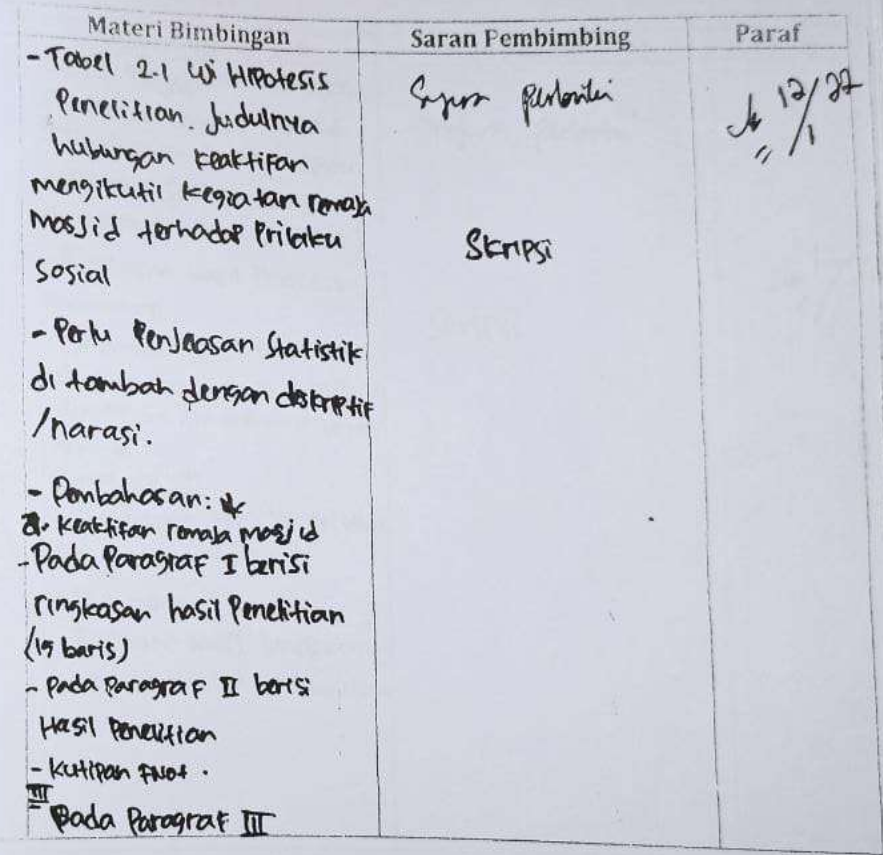 Materi Bimbingan
Saran Pembimbing
Paraf
- Tabel 2.1 Uji Hipotesis
Penelitian. Judulnya
hubungan keaktifan
mengikutil kegiatan remaja
Masjid terhadap Prilaku
Sosial
- Perlu Penjeasan Statistik
di tambah dengan deskriptif
/narasi.
- Pembahasan:
a. keaktifan remaja masjid
- Pada Paragraf I berisi
ringkasan hasil Penelitian
(15 baris)
- Pada Paragraf II berisi
Hasil Penelitian
- Kutipan FNot.
III
- Pada Paragraf III
Segera perbaiki
Skripsi
12/22
1